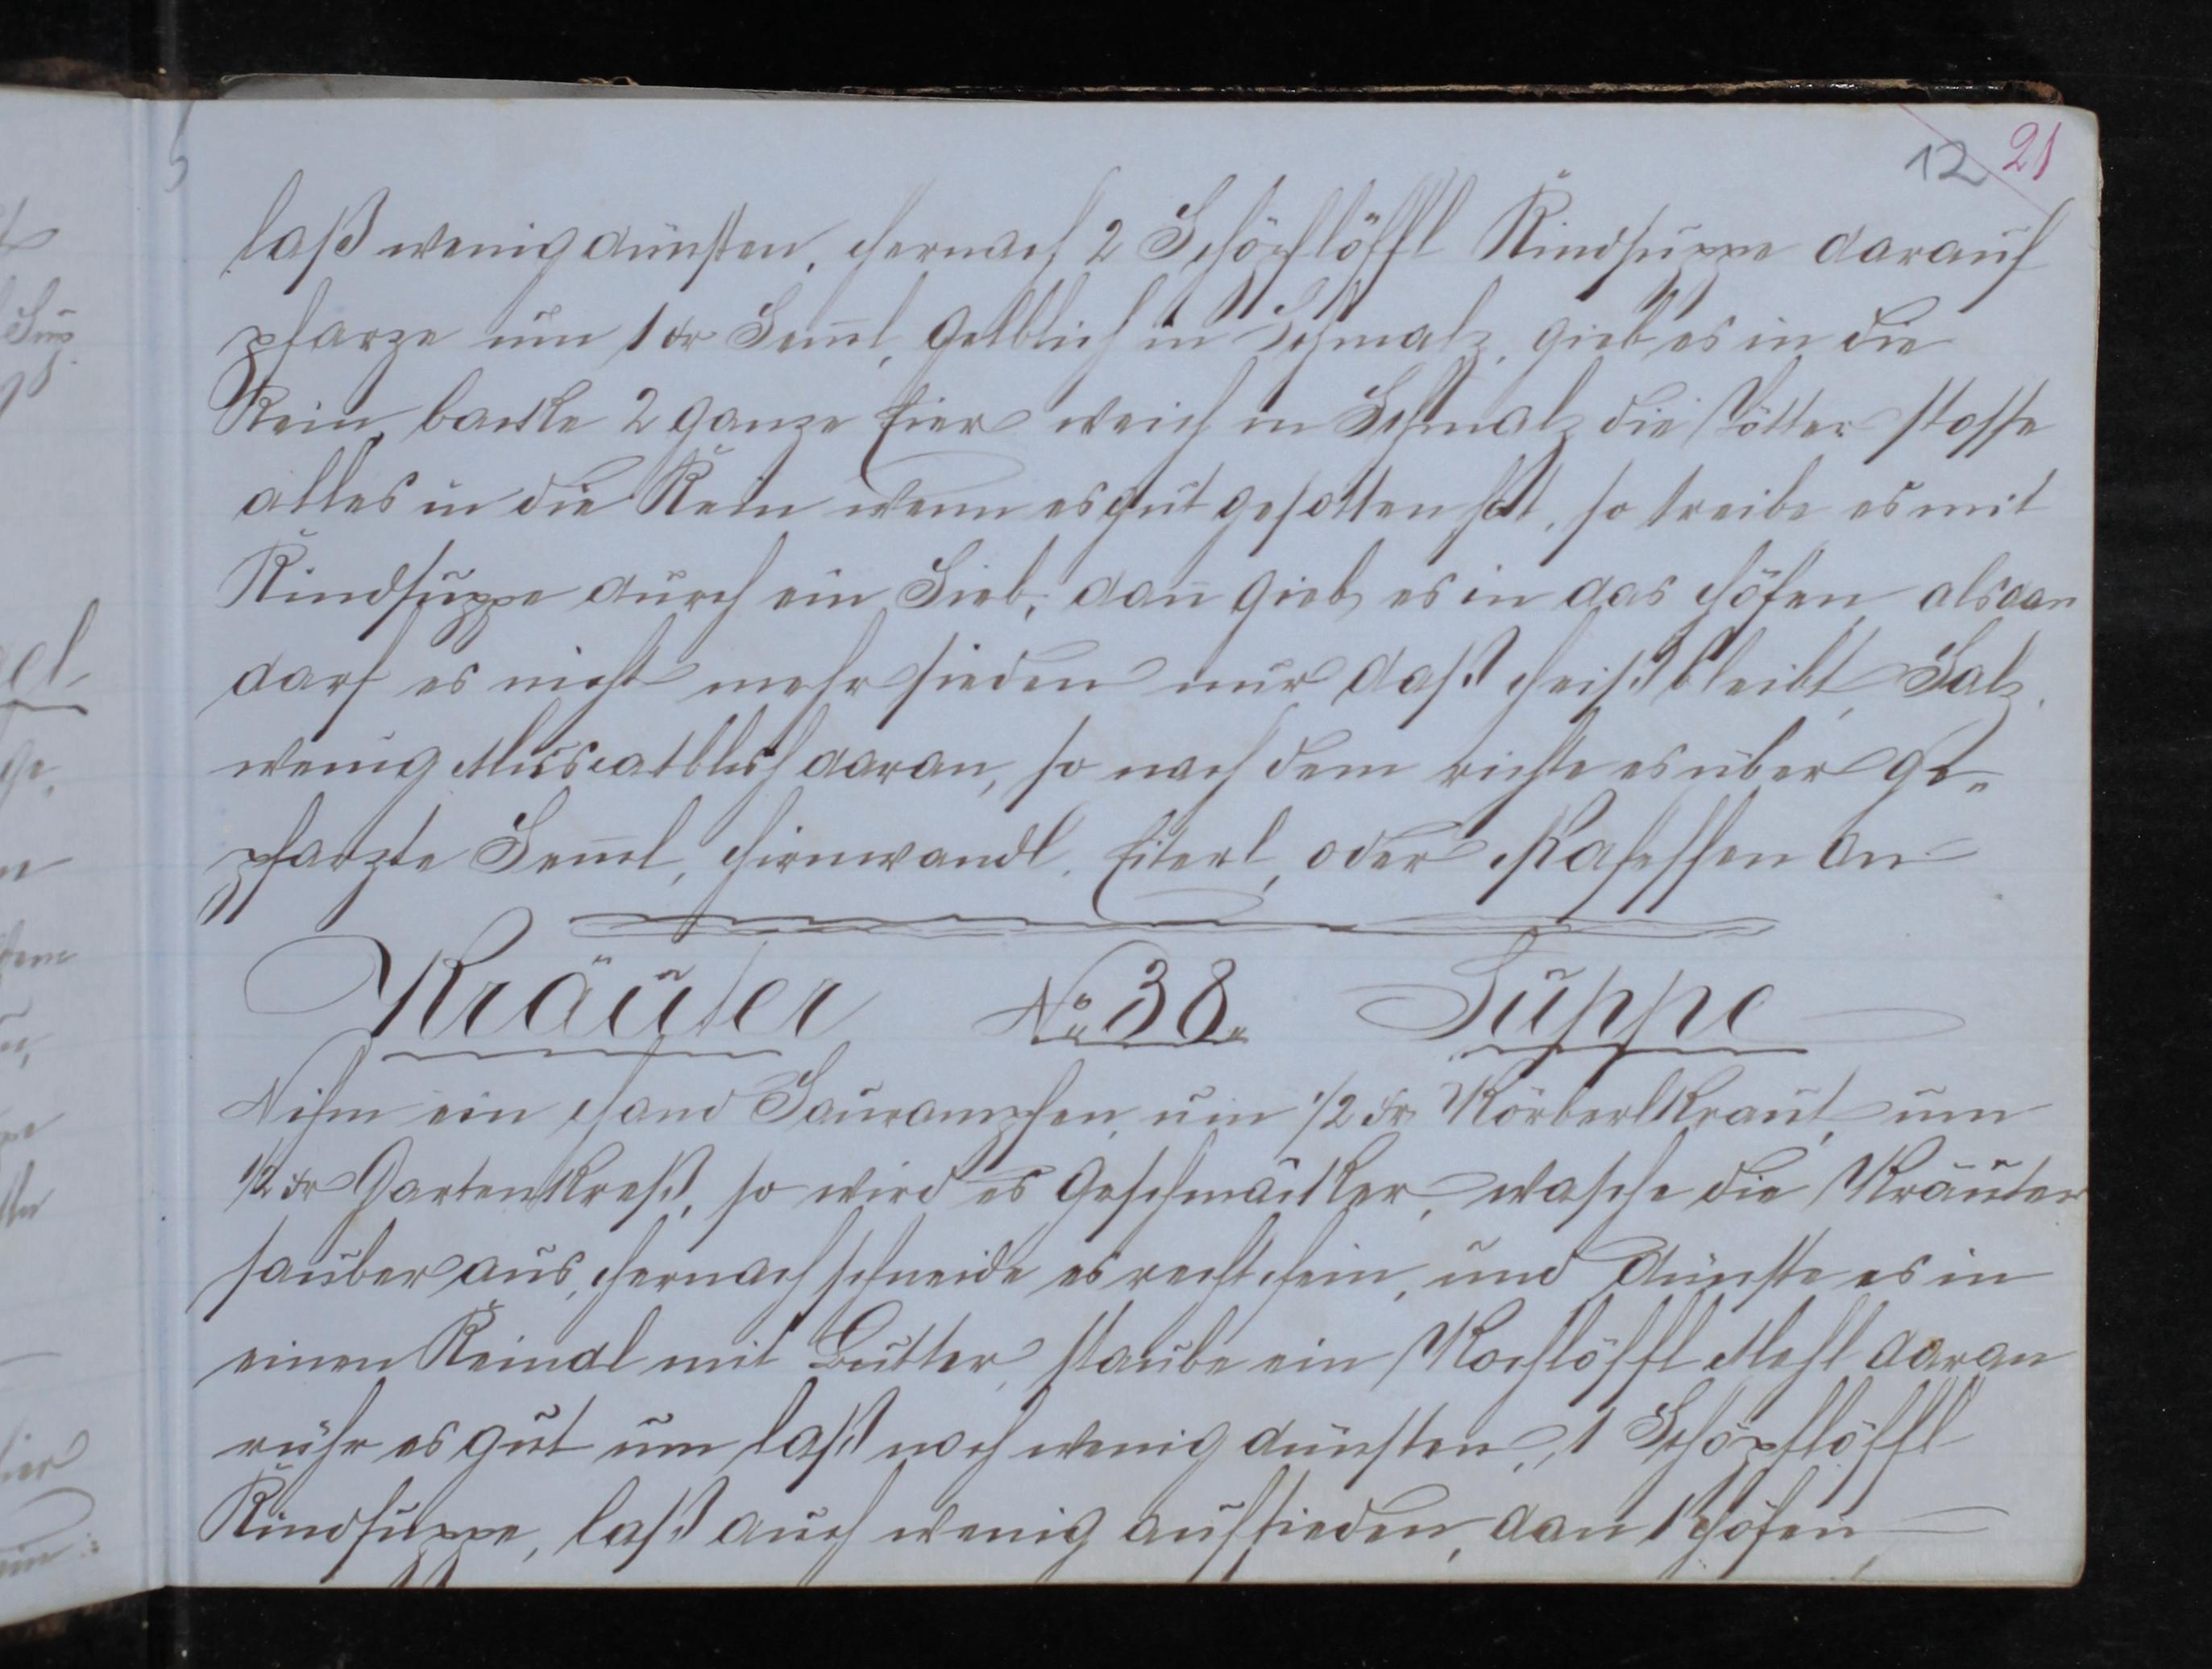 12 21
laß wenig dünsten, hernach 2 Schöpflöffl Rindsuppe darauf
pfarze um 1 xr Sem̄l, gelblich in Schmalz, gieb es in die
Rein, backe 2 ganze Eier weich in Schmalz die Dötter stosse
alles in die Rein wenn es gut gesotten hat, so treibe es mit
Rindsuppe durch ein Sieb, dan̄ gieb es in das Höfen, alsdan
darf es nicht mehr sieden nur daß heiß bleibt, Salz,
wenig Muscatblüh daran, so nach dem richte es über ge„
pfarzte Sem̄l, Hirnwandl, Eiterl, oder Kafessen an
Kräuter No „38„ Suppe
Nihm ein Hand Saurampfen, um 1/2 xr Körberlkraut, um
1/2 xr Gartenkreß, so wird es geschmäcker, wasche die Kräuter
sauber aus, hernach schneide es recht fein, und dünste es in
einen Reindl mit Butter, staube ein Kochlöffl Mehl daran
rühr es gut um laß noch wenig dünsten, 1 Schöpflöffl
Rindsuppe, laß auch wenig aufsieden, dan 1 Höfen